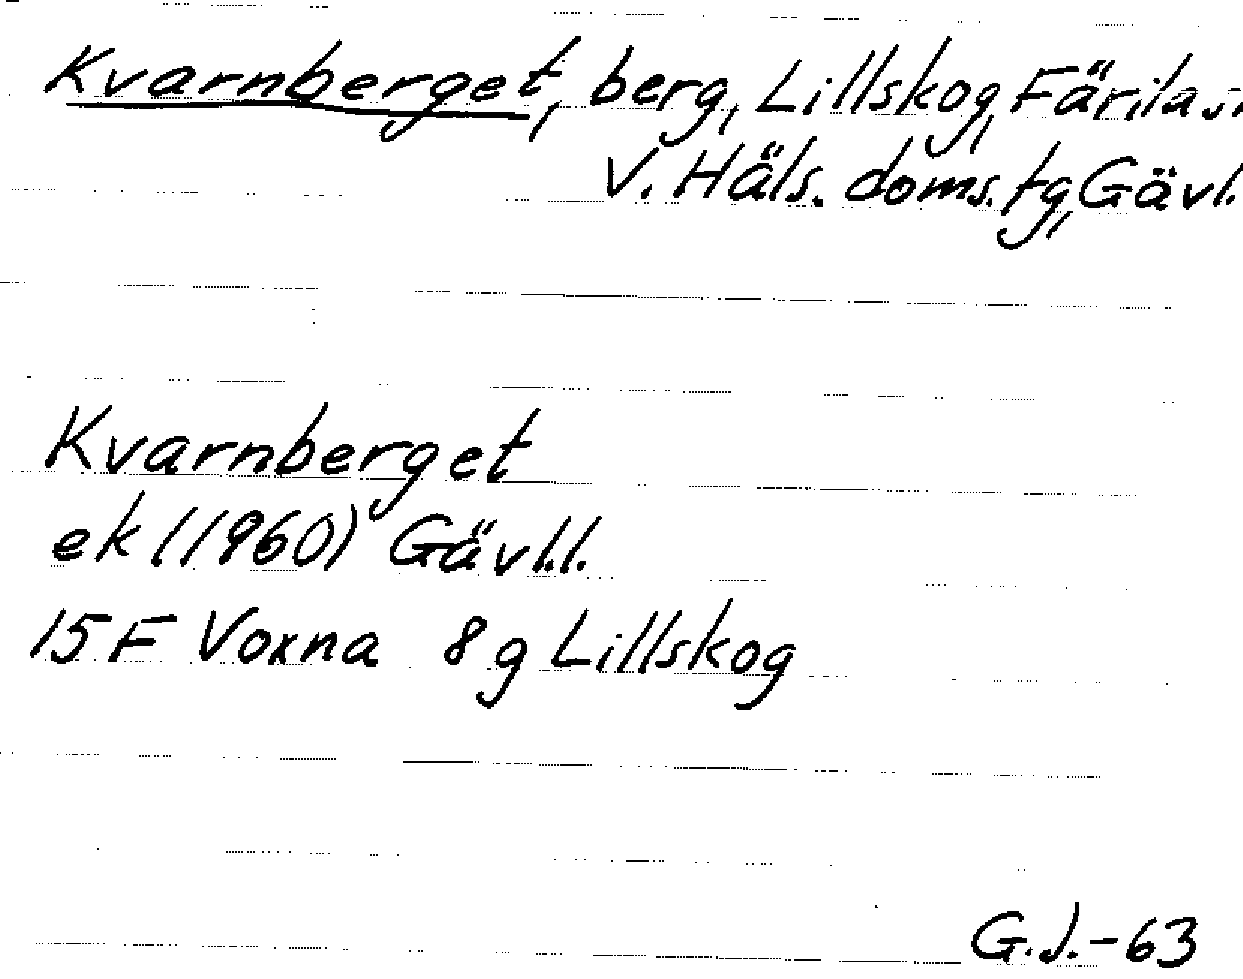 Kvarnberget, berg, Lillskog, Färila sn
V. Häls. doms. tg, Gävl.
Kvarnberget
ek (1960) Gävl.l.
15 F Voxna 8 g Lillskog
G.J.-63